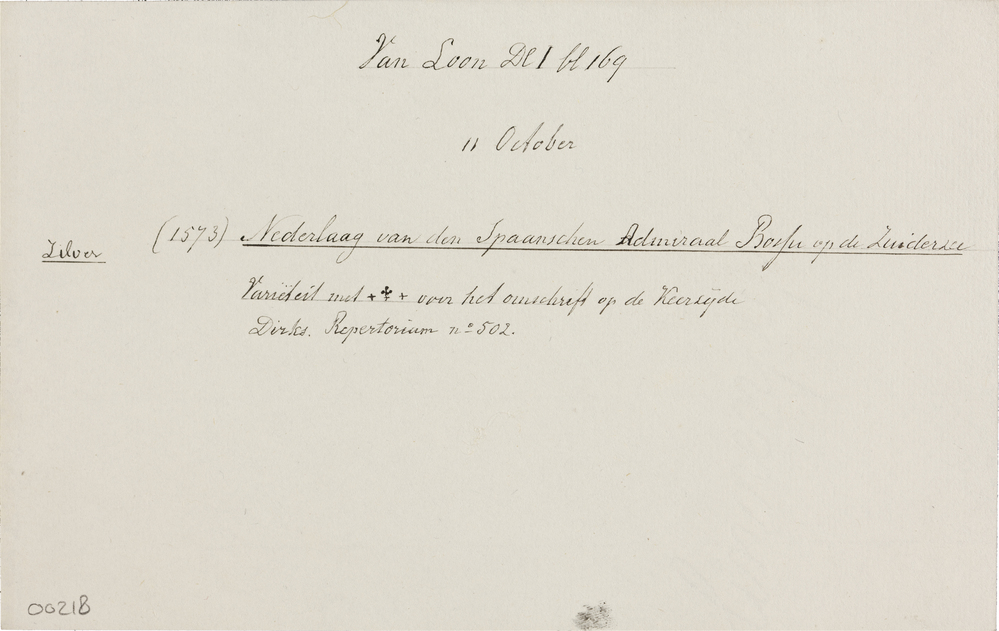 Van Loon Dl I bl 169
11 October
Zilver
(1573) Nederlaag van den Spaanschen Admiraal Bossu op de Zuiderzee
Variëteit met +✣+ voor het omschrift op de Keerzijde
Dirks. Repertorium nº 502.
00218